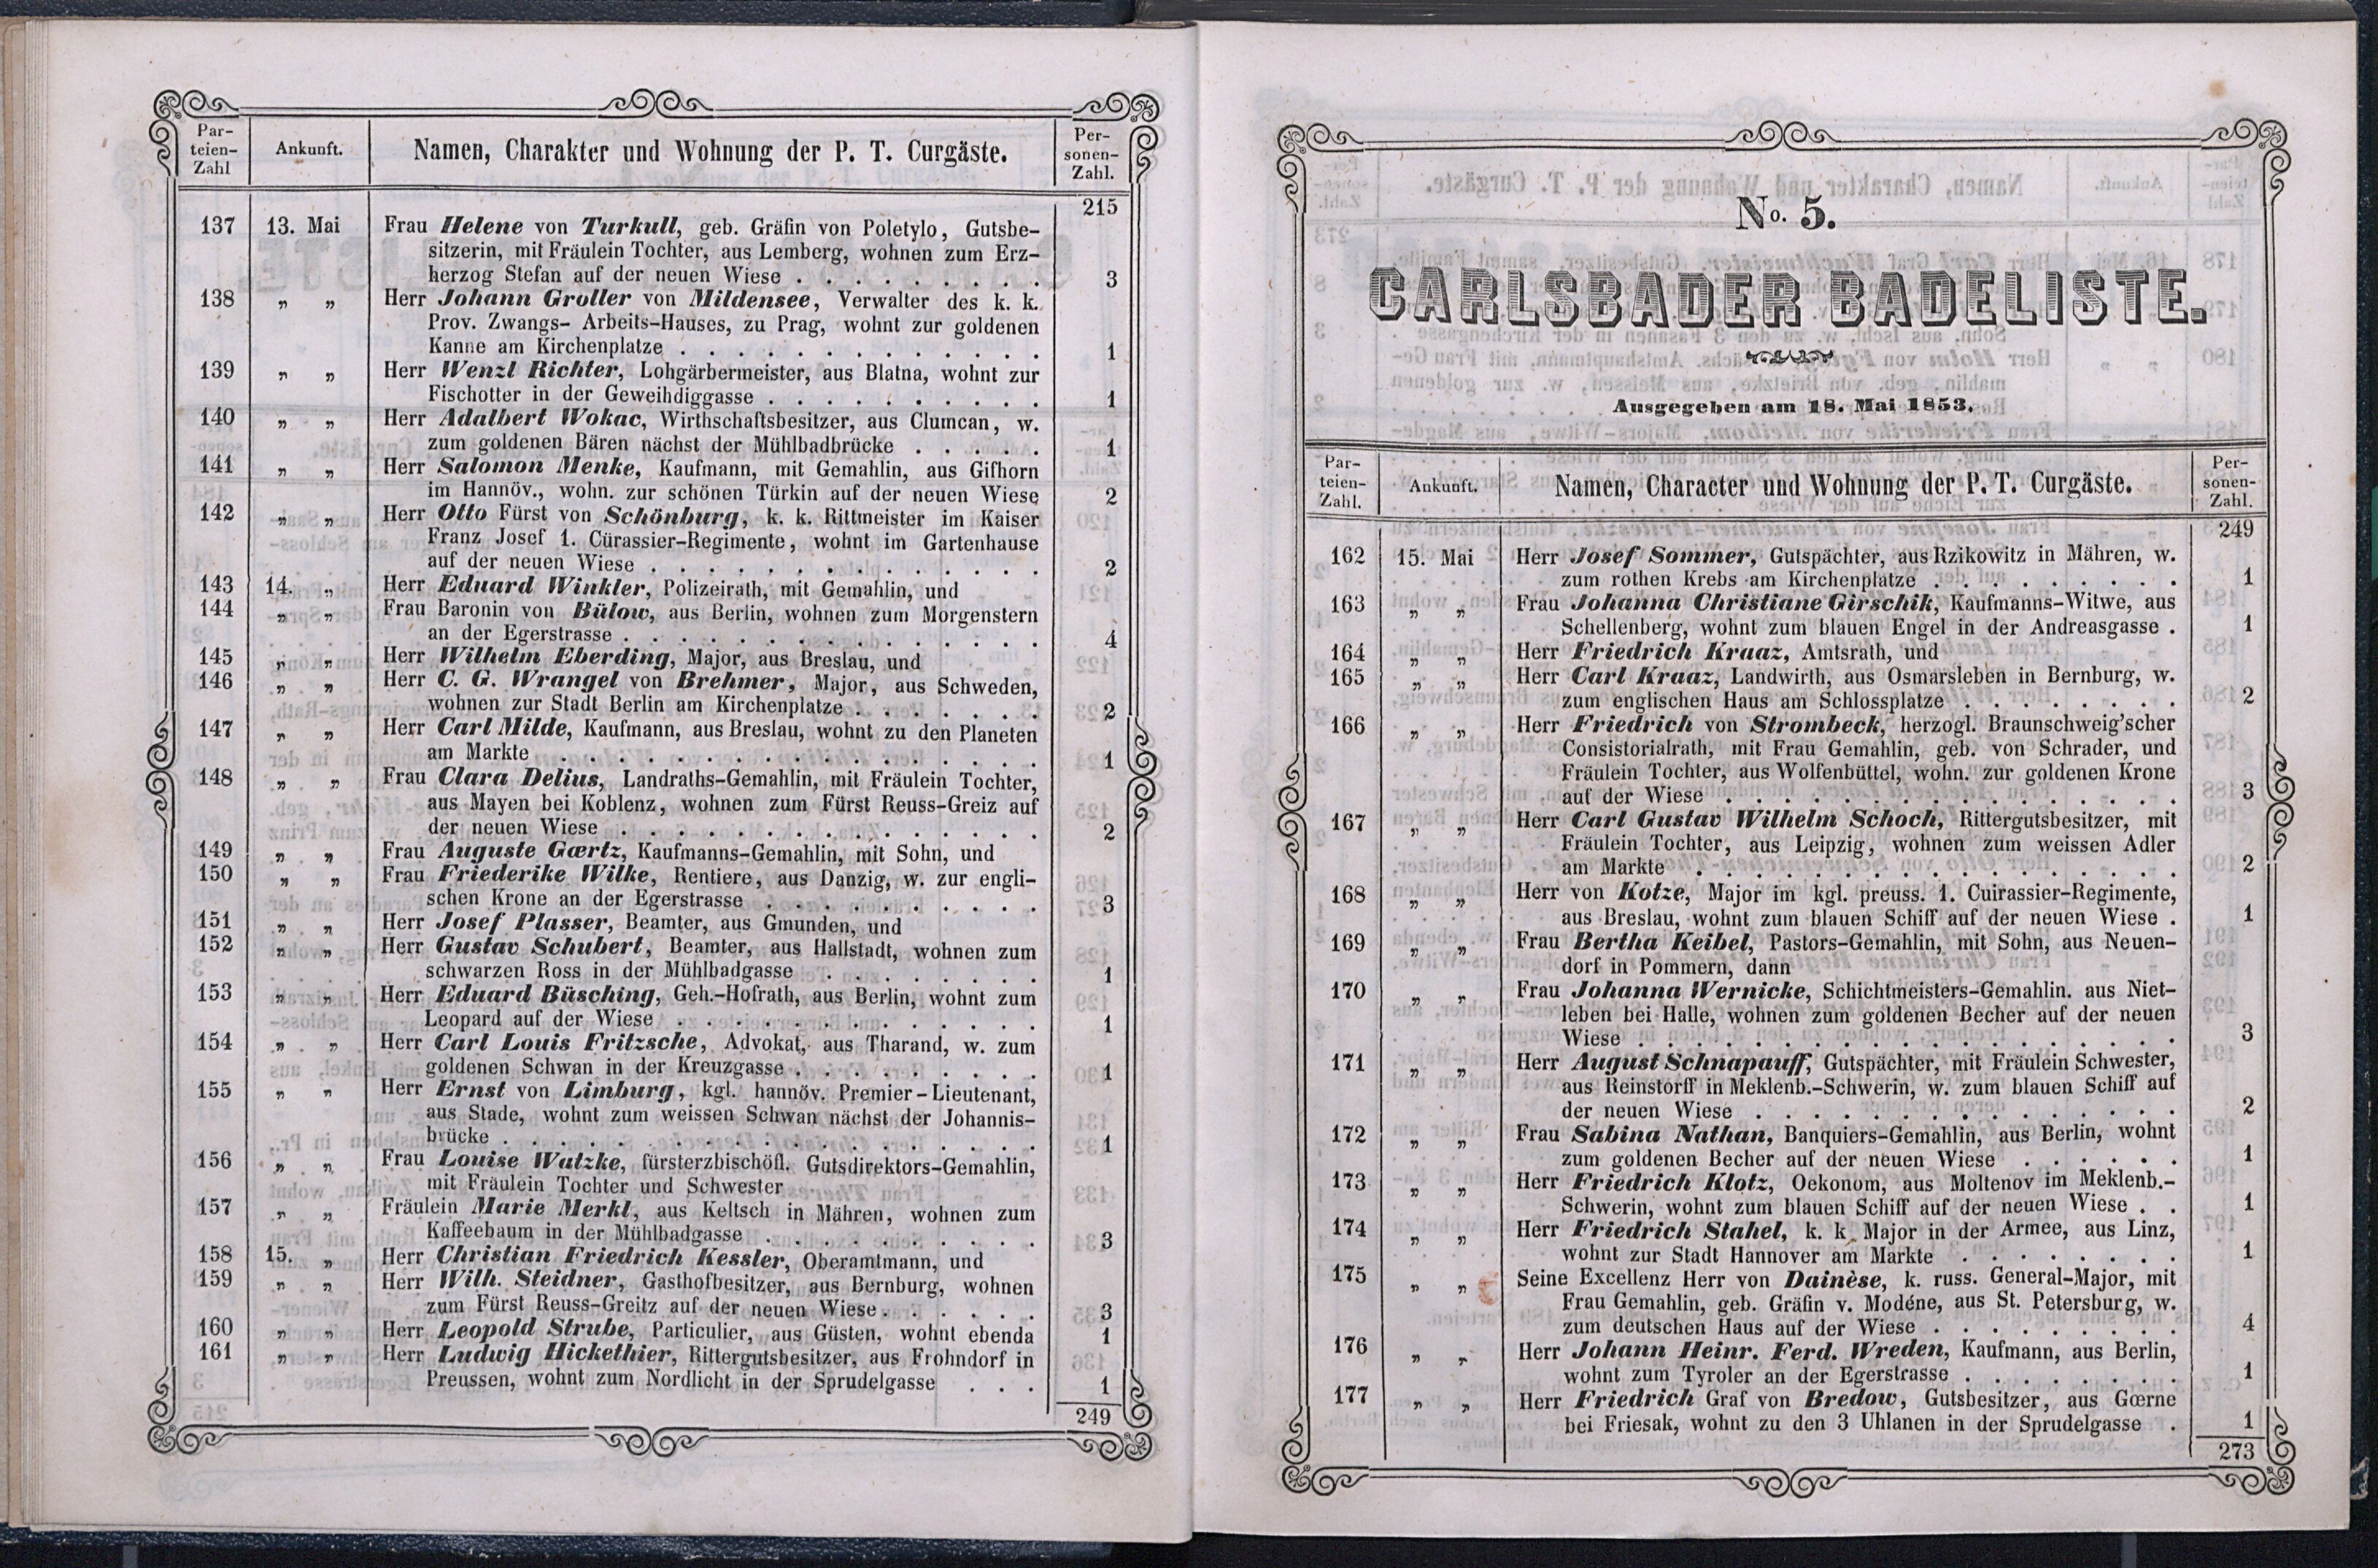 Par-
teien-
Zahl
Ankunft.
Namen, Charakter und Wohnung der P. T. Curgäste.
Per-
sonen-
Zahl.
215
137 13. Mai Frau Helene von Turkull, geb. Gräfin von Poletylo, Gutsbe-
sitzerin, mit Fräulein Tochter, aus Lemberg, wohnen zum Erz-
herzog Stefan auf der neuen Wiese . . . . . . . . . 3
138 „ „ Herr Johann Groller von Mildensee, Verwalter des k. k.
Prov. Zwangs- Arbeits-Hauses, zu Prag, wohnt zur goldenen
Kanne am Kirchenplatze . . . . . . . . . . . . . 1
139 „ „ Herr Wenzl Richter, Lohgärbermeister, aus Blatna, wohnt zur
Fischotter in der Geweihdiggasse . . . . . . . . . . 1
140 „ „ Herr Adalbert Wokac, Wirthschaftsbesitzer, aus Clumcan, w.
zum goldenen Bären nächst der Mühlbadbrücke . . . . . 1
141 „ „ Herr Salomon Menke, Kaufmann, mit Gemahlin, aus Gifhorn
im Hannöv., wohn. zur schönen Türkin auf der neuen Wiese 2
142 „ „ Herr Otto Fürst von Schönburg, k. k. Rittmeister im Kaiser
Franz Josef 1. Cürassier-Regimente, wohnt im Gartenhause
auf der neuen Wiese . . . . . . . . . . . . . . 2
143 14. „ Herr Eduard Winkler, Polizeirath, mit Gemahlin, und
144 „ „ Frau Baronin von Bülow, aus Berlin, wohnen zum Morgenstern
an der Egerstrasse . . . . . . . . . . . . . . . 4
145 „ „ Herr Wilhelm Eberding, Major, aus Breslau, und
146 „ „ Herr C. G. Wrangel von Brehmer, Major, aus Schweden,
wohnen zur Stadt Berlin am Kirchenplatze . . . . . . . 2
147 „ „ Herr Carl Milde, Kaufmann, aus Breslau, wohnt zu den Planeten
am Markte . . . . . . . . . . . . . . . . . 1
148 „ „ Frau Clara Delius, Landraths-Gemahlin, mit Fräulein Tochter,
aus Mayen bei Koblenz, wohnen zum Fürst Reuss-Greiz auf
der neuen Wiese . . . . . . . . . . . . . . . 2
149 „ „ Frau Auguste Gœrtz, Kaufmanns-Gemahlin, mit Sohn, und
150 „ „ Frau Friederike Wilke, Rentiere, aus Danzig, w. zur engli-
schen Krone an der Egerstrasse . . . . . . . . . . 3
151 „ „ Herr Josef Plasser, Beamter, aus Gmunden, und
152 „ „ Herr Gustav Schubert, Beamter, aus Hallstadt, wohnen zum
schwarzen Ross in der Mühlbadgasse . . . . . . . . 1
153 „ „ Herr Eduard Büsching, Geh.-Hofrath, aus Berlin, wohnt zum
Leopard auf der Wiese . . . . . . . . . . . . . 1
154 „ „ Herr Carl Louis Fritzsche, Advokat, aus Tharand, w. zum
goldenen Schwan in der Kreuzgasse . . . . . . . . . 1
155 „ „ Herr Ernst von Limburg, kgl. hannöv. Premier-Lieutenant,
aus Stade, wohnt zum weissen Schwan nächst der Johannis-
brücke . . . . . . . . . . . . . . . . . . . 1
156 „ „ Frau Louise Watzke, fürsterzbischöfl. Gutsdirektors-Gemahlin,
mit Fräulein Tochter und Schwester
157 „ „ Fräulein Marie Merkl, aus Keltsch in Mähren, wohnen zum
Kaffeebaum in der Mühlbadgasse . . . . . . . . . . 3
158 15. „ Herr Christian Friedrich Kessler, Oberamtmann, und
159 „ „ Herr Wilh. Steidner, Gasthofbesitzer, aus Bernburg, wohnen
zum Fürst Reuss-Greitz auf der neuen Wiese . . . . . . 3
160 „ „ Herr Leopold Strube, Particulier, aus Güsten, wohnt ebenda 1
161 „ „ Herr Ludwig Hickethier, Rittergutsbesitzer, aus Frohndorf in
Preussen, wohnt zum Nordlicht in der Sprudelgasse . . . 1
249
No. 5.
CARLSBADER BADELISTE.
Ausgegeben am 18. Mai 1853.
Par-
teien-
Zahl.
Ankunft.
Namen, Character und Wohnung der P. T. Curgäste.
Per-
sonen-
Zahl.
249
162 15. Mai Herr Josef Sommer, Gutspächter, aus Rzikowitz in Mähren, w.
zum rothen Krebs am Kirchenplatze . . . . . . . . . 1
163 „ „ Frau Johanna Christiane Girschik, Kaufmanns-Witwe, aus
Schellenberg, wohnt zum blauen Engel in der Andreasgasse . 1
164 „ „ Herr Friedrich Kraaz, Amtsrath, und
165 „ „ Herr Carl Kraaz, Landwirth, aus Osmarsleben in Bernburg, w.
zum englischen Haus am Schlossplatze . . . . . . . . 2
166 „ „ Herr Friedrich von Strombeck, herzogl. Braunschweig'scher
Consistorialrath, mit Frau Gemahlin, geb. von Schrader, und
Fräulein Tochter, aus Wolfenbüttel, wohn. zur goldenen Krone
auf der Wiese . . . . . . . . . . . . . . . . 3
167 „ „ Herr Carl Gustav Wilhelm Schoch, Rittergutsbesitzer, mit
Fräulein Tochter, aus Leipzig, wohnen zum weissen Adler
am Markte . . . . . . . . . . . . . . . . . 2
168 „ „ Herr von Kotze, Major im kgl. preuss. 1. Cuirassier-Regimente,
aus Breslau, wohnt zum blauen Schiff auf der neuen Wiese . 1
169 „ „ Frau Bertha Keibel, Pastors-Gemahlin, mit Sohn, aus Neuen-
dorf in Pommern, dann
170 „ „ Frau Johanna Wernicke, Schichtmeisters-Gemahlin. aus Niet-
leben bei Halle, wohnen zum goldenen Becher auf der neuen
Wiese . . . . . . . . . . . . . . . . . . . 3
171 „ „ Herr August Schnapauff, Gutspächter, mit Fräulein Schwester,
aus Reinstorff in Meklenb.-Schwerin, w. zum blauen Schiff auf
der neuen Wiese . . . . . . . . . . . . . . . 2
172 „ „ Frau Sabina Nathan, Banquiers-Gemahlin, aus Berlin, wohnt
zum goldenen Becher auf der neuen Wiese . . . . . . 1
173 „ „ Herr Friedrich Klotz, Oekonom, aus Moltenov im Meklenb.-
Schwerin, wohnt zum blauen Schiff auf der neuen Wiese . . 1
174 „ „ Herr Friedrich Stahel, k. k. Major in der Armee, aus Linz,
wohnt zur Stadt Hannover am Markte . . . . . . . . 1
175 „ „ Seine Excellenz Herr von Dainèse, k. russ. General-Major, mit
Frau Gemahlin, geb. Gräfin v. Modéne, aus St. Petersburg, w.
zum deutschen Haus auf der Wiese . . . . . . . . . 4
176 „ „ Herr Johann Heinr. Ferd. Wreden, Kaufmann, aus Berlin,
wohnt zum Tyroler an der Egerstrasse . . . . . . . . 1
177 „ „ Herr Friedrich Graf von Bredow, Gutsbesitzer, aus Gœrne
bei Friesak, wohnt zu den 3 Uhlanen in der Sprudelgasse . 1
273